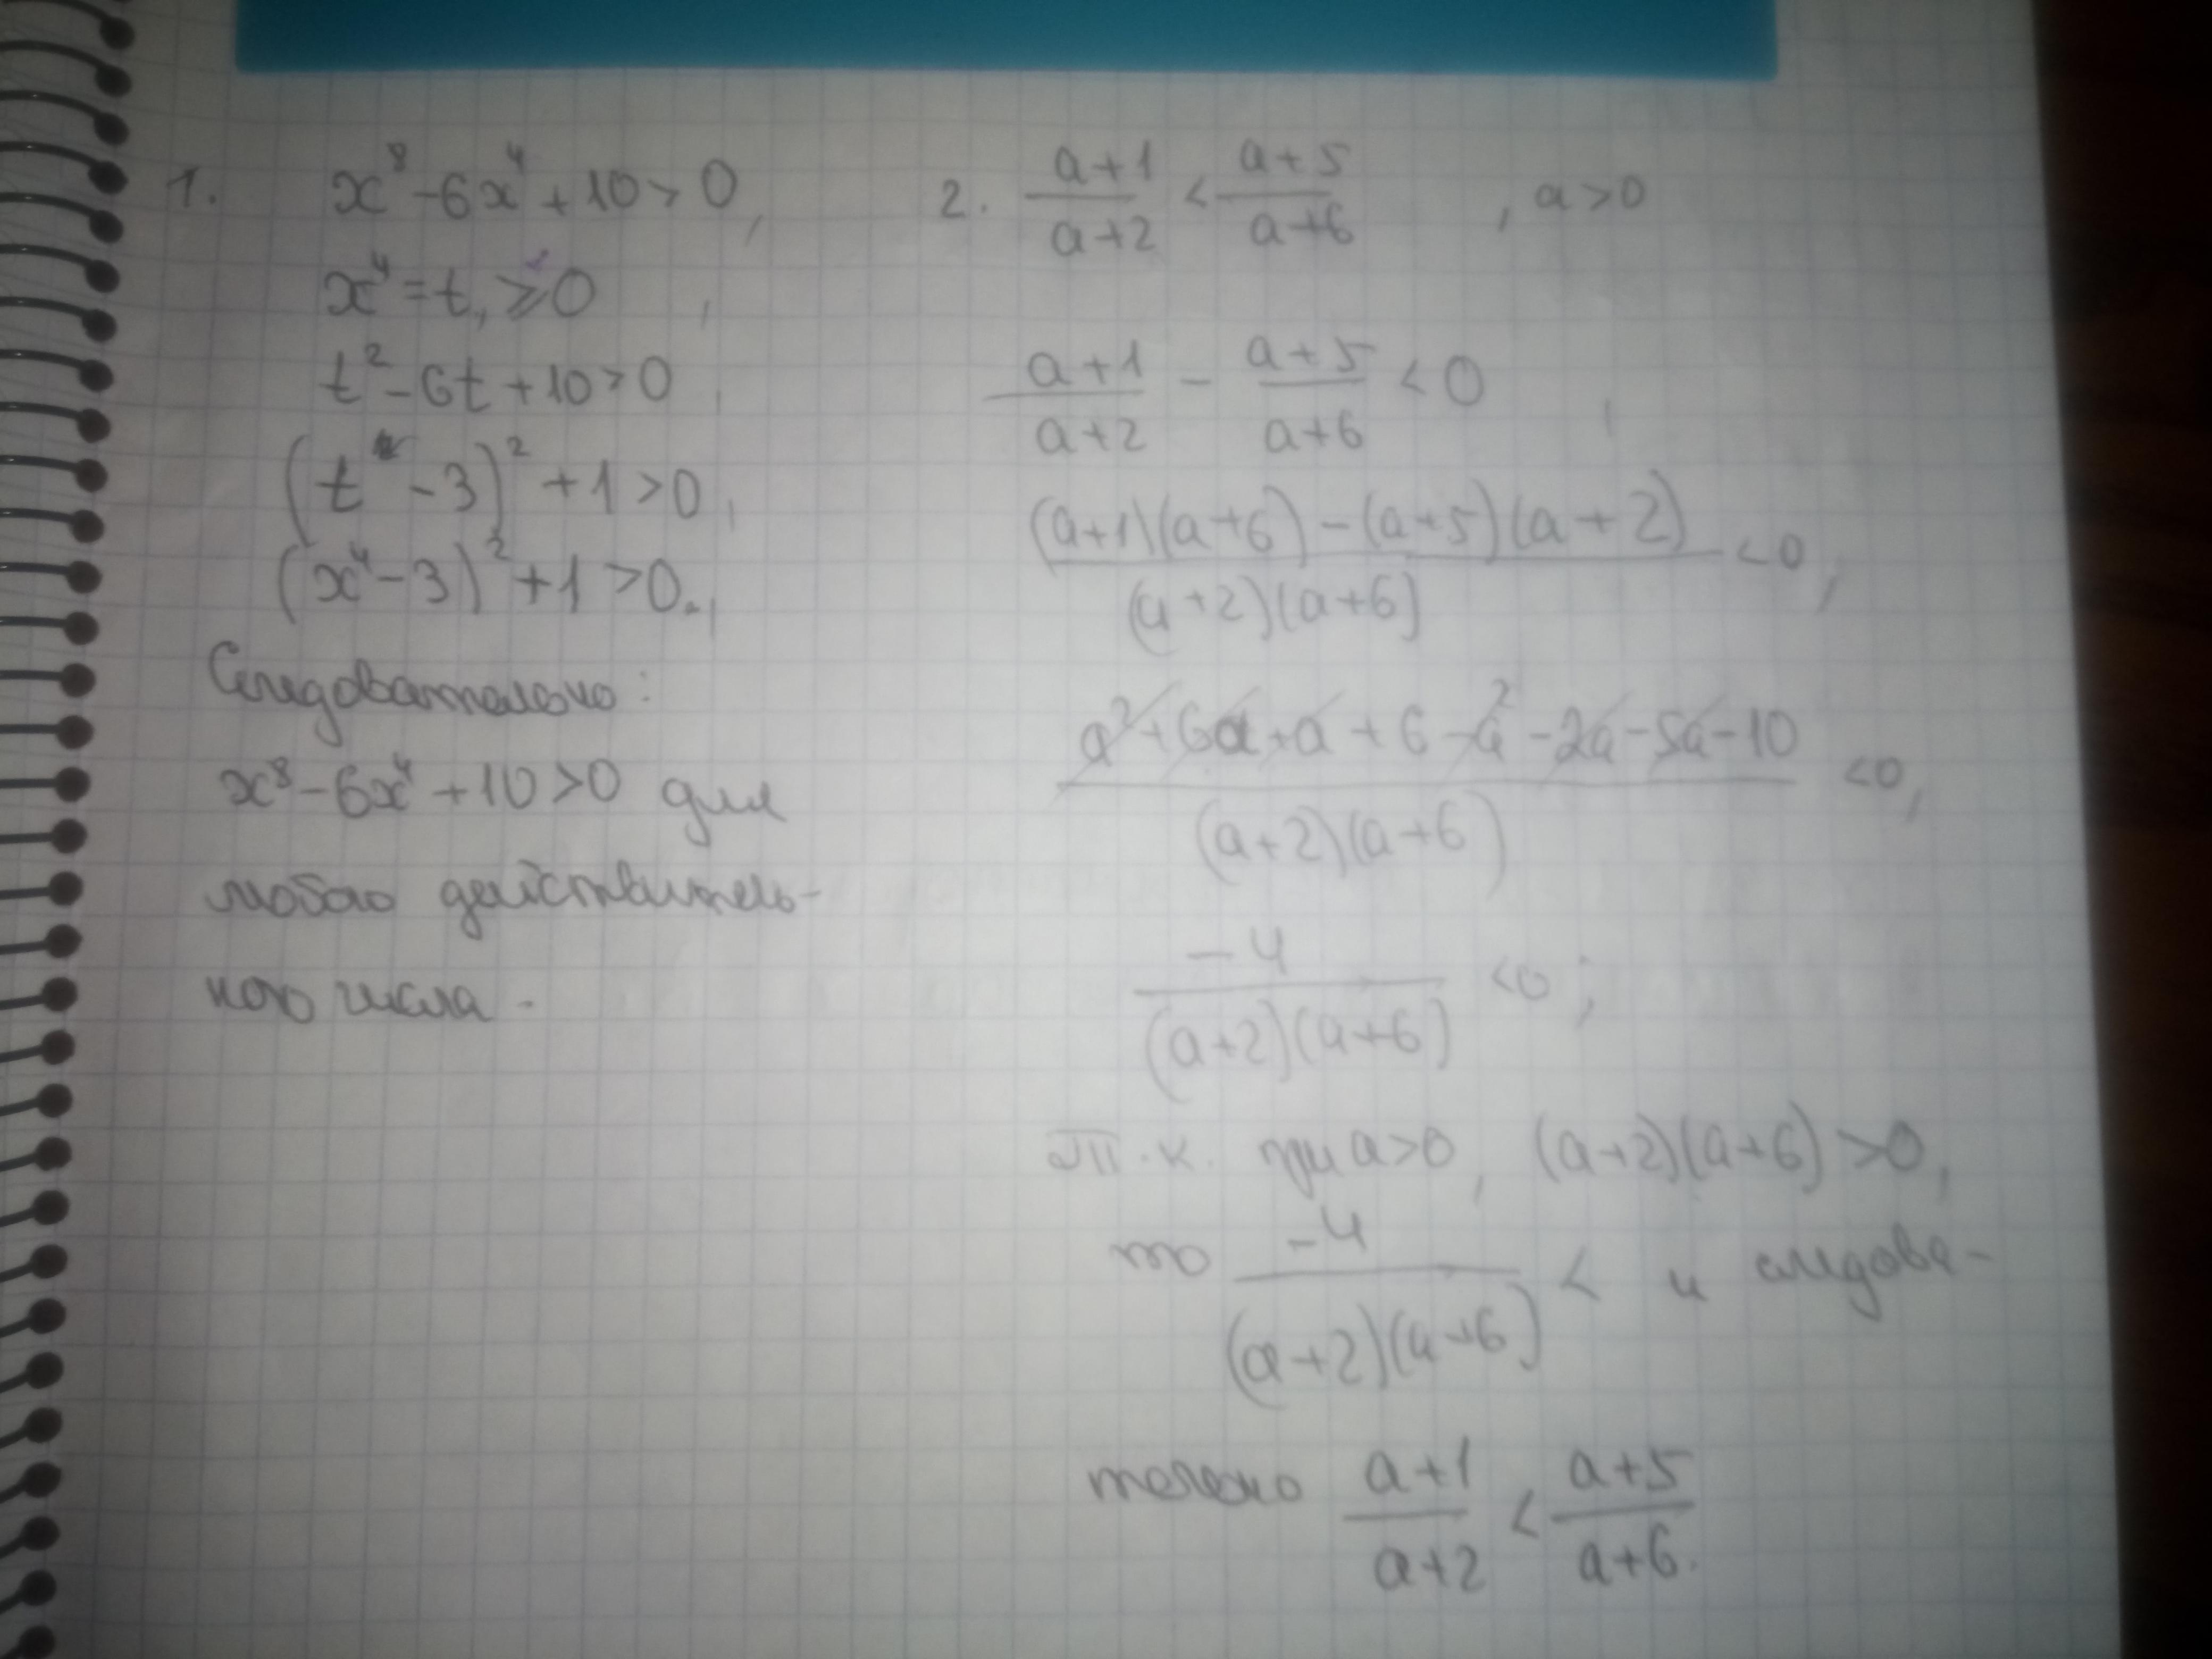 1. x⁸ - 6x⁴ + 10 > 0,
x⁴ = t, ⩾ 0,
t² - 6t + 10 > 0,
(t - 3)² + 1 > 0,
(x⁴ - 3)² + 1 > 0.,
Следовательно:
x⁸ - 6x⁴ + 10 > 0 для
любого действитель-
ного числа.
2. (a+1)/(a+2) < (a+5)/(a+6), a > 0
(a+1)/(a+2) - (a+5)/(a+6) < 0,
((a+1)(a+6) - (a+5)(a+2))/((a+2)(a+6)) < 0,
(a² + 6a + a + 6 - a² - 2a - 5a - 10)/((a+2)(a+6)) < 0,
-4/((a+2)(a+6)) < 0;
Т.к. при a > 0, (a+2)(a+6) > 0,
то -4/((a+2)(a+6)) < и следова-
тельно (a+1)/(a+2) < (a+5)/(a+6).